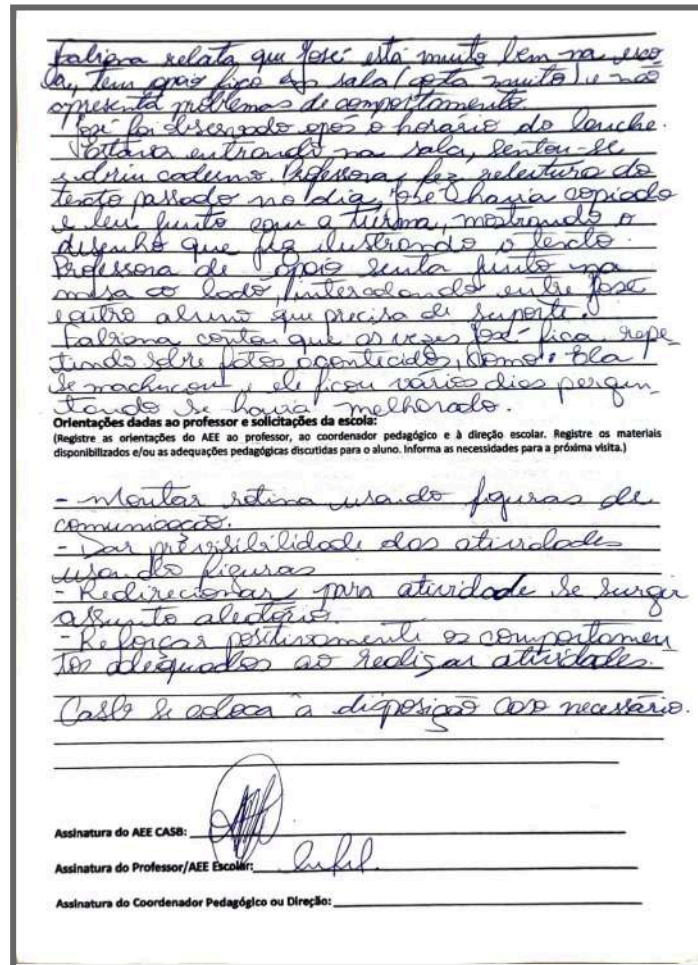 Fabiana relata que José está muito bem na esco
la, tem apoio fixo em sala (gosta muito) e não
apresenta problemas de comportamento.
José foi observado após o horário do lanche.
Estava entrando na sala, sentou-se
e abriu caderno. Professora fez releitura do
texto passado no dia, José havia copiado
e leu junto com a turma, mostrando o
desenho que fez ilustrando o texto.
Professora de apoio senta junto na
mesa ao lado, intercalando entre José
e outro aluno que precisa de suporte.
Fabiana contou que as vezes José fica repe
tindo sobre fatos acontecidos, como: Ela
se machucou e ele ficou vários dias pergun
tando se havia melhorado.
Orientações dadas ao professor e solicitações da escola:
(Registre as orientações do AEE ao professor, ao coordenador pedagógico e à direção escolar. Registre os materiais
disponibilizados e/ou as adequações pedagógicas discutidas para o aluno. Informa as necessidades para a próxima visita.)
- Montar rotina usando figuras de
comunicação.
- Dar previsibilidade das atividades
usando figuras
- Redirecionar para atividade se surgir
assunto aleatório.
- Reforçar positivamente os comportamen
tos adequados ao realizar atividades.
CASB se coloca a disposição caso necessário.
Assinatura do AEE CASB:
Assinatura do Professor/AEE Escolar:
Assinatura do Coordenador Pedagógico ou Direção: